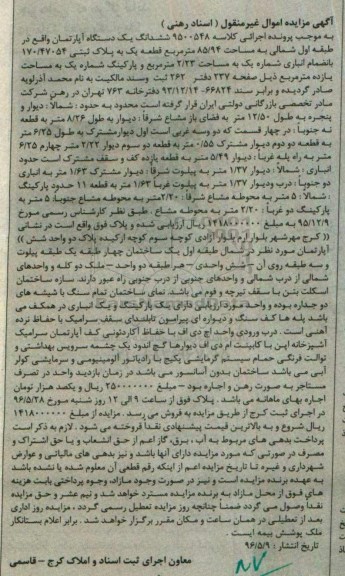 آگهی مزایده اموال غیرمنقول ( اسناد رهنی )
به موجب پرونده اجرائی کلاسه ۹۵۰۰۵۴۸ ششدانگ یک دستگاه آپارتمان واقع در
طبقه اول شمالی به مساحت ۸۵/۹۴ مترمربع قطعه یک به پلاک ثبتی ۱۷۰/۴۷۰۵۴
بانضمام انباری شماره یک به مساحت ۲/۲۳ مترمربع و پارکینگ شماره یک به مساحت
یازده مترمربع ذیل صفحه ۲۳۷ دفتر ۲۶۲ ثبت وسند مالکیت به نام محمد آذراویه
صادر گردیده و برابر سند ۶۶۸۲۴- ۹۳/۱۲/۱۴ دفترخانه ۷۶۳ تهران در رهن شرکت
مادر تخصصی بازرگانی دولتی ایران قرار گرفته است محدود به حدود : شمالاً : دیوار و
پنجره به طول ۱۲/۵۰ متر به فضای باز مشاع شرقاً : دیوار به طول ۸/۲۶ متر به قطعه
نه جنوباً : در چهار قسمت که دو وسه غربی است اول دیوارمشترک به طول ۶/۲۵ متر
به قطعه دو دوم دیوار مشترک ۰/۵۵ متر به قطعه دو سوم دیوار ۲/۲۲ متر چهارم ۶/۲۵
متر به راه پله غرباً : دیوار ۵/۴۹ متر به قطعه یازده کف و سقف مشترک است حدود
انباری : شمالاً : دیوار ۱/۳۷ متر به پیلوت شرقاً : دیوار مشترک ۱/۶۳ متر به انباری
دو جنوباً : درب ودیوار ۱/۳۷ متر به پیلوت غرباً ۱/۶۳ متر به قطعه ۱۱ حدود پارکینگ
: شمالاً : ۵ متر به محوطه مشاع شرقاً : ۲/۲۰متر به محوطه مشاع جنوباً: ۵ متر به
پارکینگ دو غرباً : ۲/۲۰ متر به محوطه مشاع . طبق نظر کارشناس رسمی مورخ
۹۵/۱۲/۹ به مبلغ ۱۴۱۸۰۰۰۰۰۰ ریال ارزیابی شده و پلاک فوق واقع است در نشانی
(( کرج مهرشهر بلوار ارم بلوار آزادی کوچه سوم کوچه ارکیده پلاک دو واحد شش ))
آپارتمان مورد نظر در شمال طبقه اول یک ساختمان چهار طبقه یک طبقه پیلوت
و سه طبقه روی آن – شش واحدی – هر طبقه دو واحد – ملک دو کله و واحدهای
شمالی از درب شمالی و واحدهای جنوبی از درب جنوبی راه عبور دارند. سازه ساختمان
اسکلت بتن با سقف تیرچه و فوم می باشد. نمای ساختمان تمام سنگ با شیشه های
دو جداره بوده و واحد مورد ارزیابی دارای یک پارکینگ و یک انباری در همکف می
باشد پله ها کف سنگ و دیواره ای پیرامون تابلندای سقف سرامیک با حفاظ نرده
آهنی است . درب ورودی واحد اچ دی اف با حفاظ آکاردئونی کف آپارتمان سرامیک
آشپزخانه اپن با کابینت ام دی اف دیوارها گچ اندود یک چشمه سرویس بهداشتی و
توالت فرنگی حمام سیستم گرمایشی پکیج با رادیاتور آلومینیومی و سرمایشی کولر
آبی می باشد ساختمان بدون آسانسور می باشد در زمان بازدید واحد در تصرف
مستاجر به صورت رهن و اجاره بود – مبلغ ۲۵۰۰۰۰۰۰۰ ریال و یکصد هزار تومان
اجاره بهای ماهانه می باشد . پلاک فوق از ساعت ۹ الی ۱۲ روز شنبه مورخ ۹۶/۵/۲۸
در اجرای ثبت کرج از طریق مزایده به فروش می رسد . مزایده از مبلغ ۱۴۱۸۰۰۰۰۰۰
ریال شروع و به بالاترین قیمت پیشنهادی نقداً فروخته می شود . لازم به ذکر است
پرداخت بدهی های مربوط به آب ، برق، گاز اعم از حق انشعاب و یا حق اشتراک و
مصرف در صورتی که مورد مزایده دارای آنها باشد و نیز بدهی های مالیاتی و عوارض
شهرداری و غیره تا تاریخ مزایده اعم از اینکه رقم قطعی آن معلوم شده یا نشده باشد
به عهده برنده مزایده است و نیز در صورت وجود مازاد، وجوه پرداختی بابت هزینه
های فوق از محل مازاد به برنده مزایده مسترد خواهد شد و نیم عشر و حق مزایده
نقداً وصول می گردد ضمناً چنانچه روز مزایده تعطیل رسمی گردد ، مزایده روز اداری
بعد از تعطیلی در همان ساعت و مکان مقرر برگزار خواهد شد . برابر اعلام بستانکار
ملک پوشش بیمه ایست .
تاریخ انتشار : ۹۶/۵/۹
معاون اجرای ثبت اسناد و املاک کرج – قاسمی